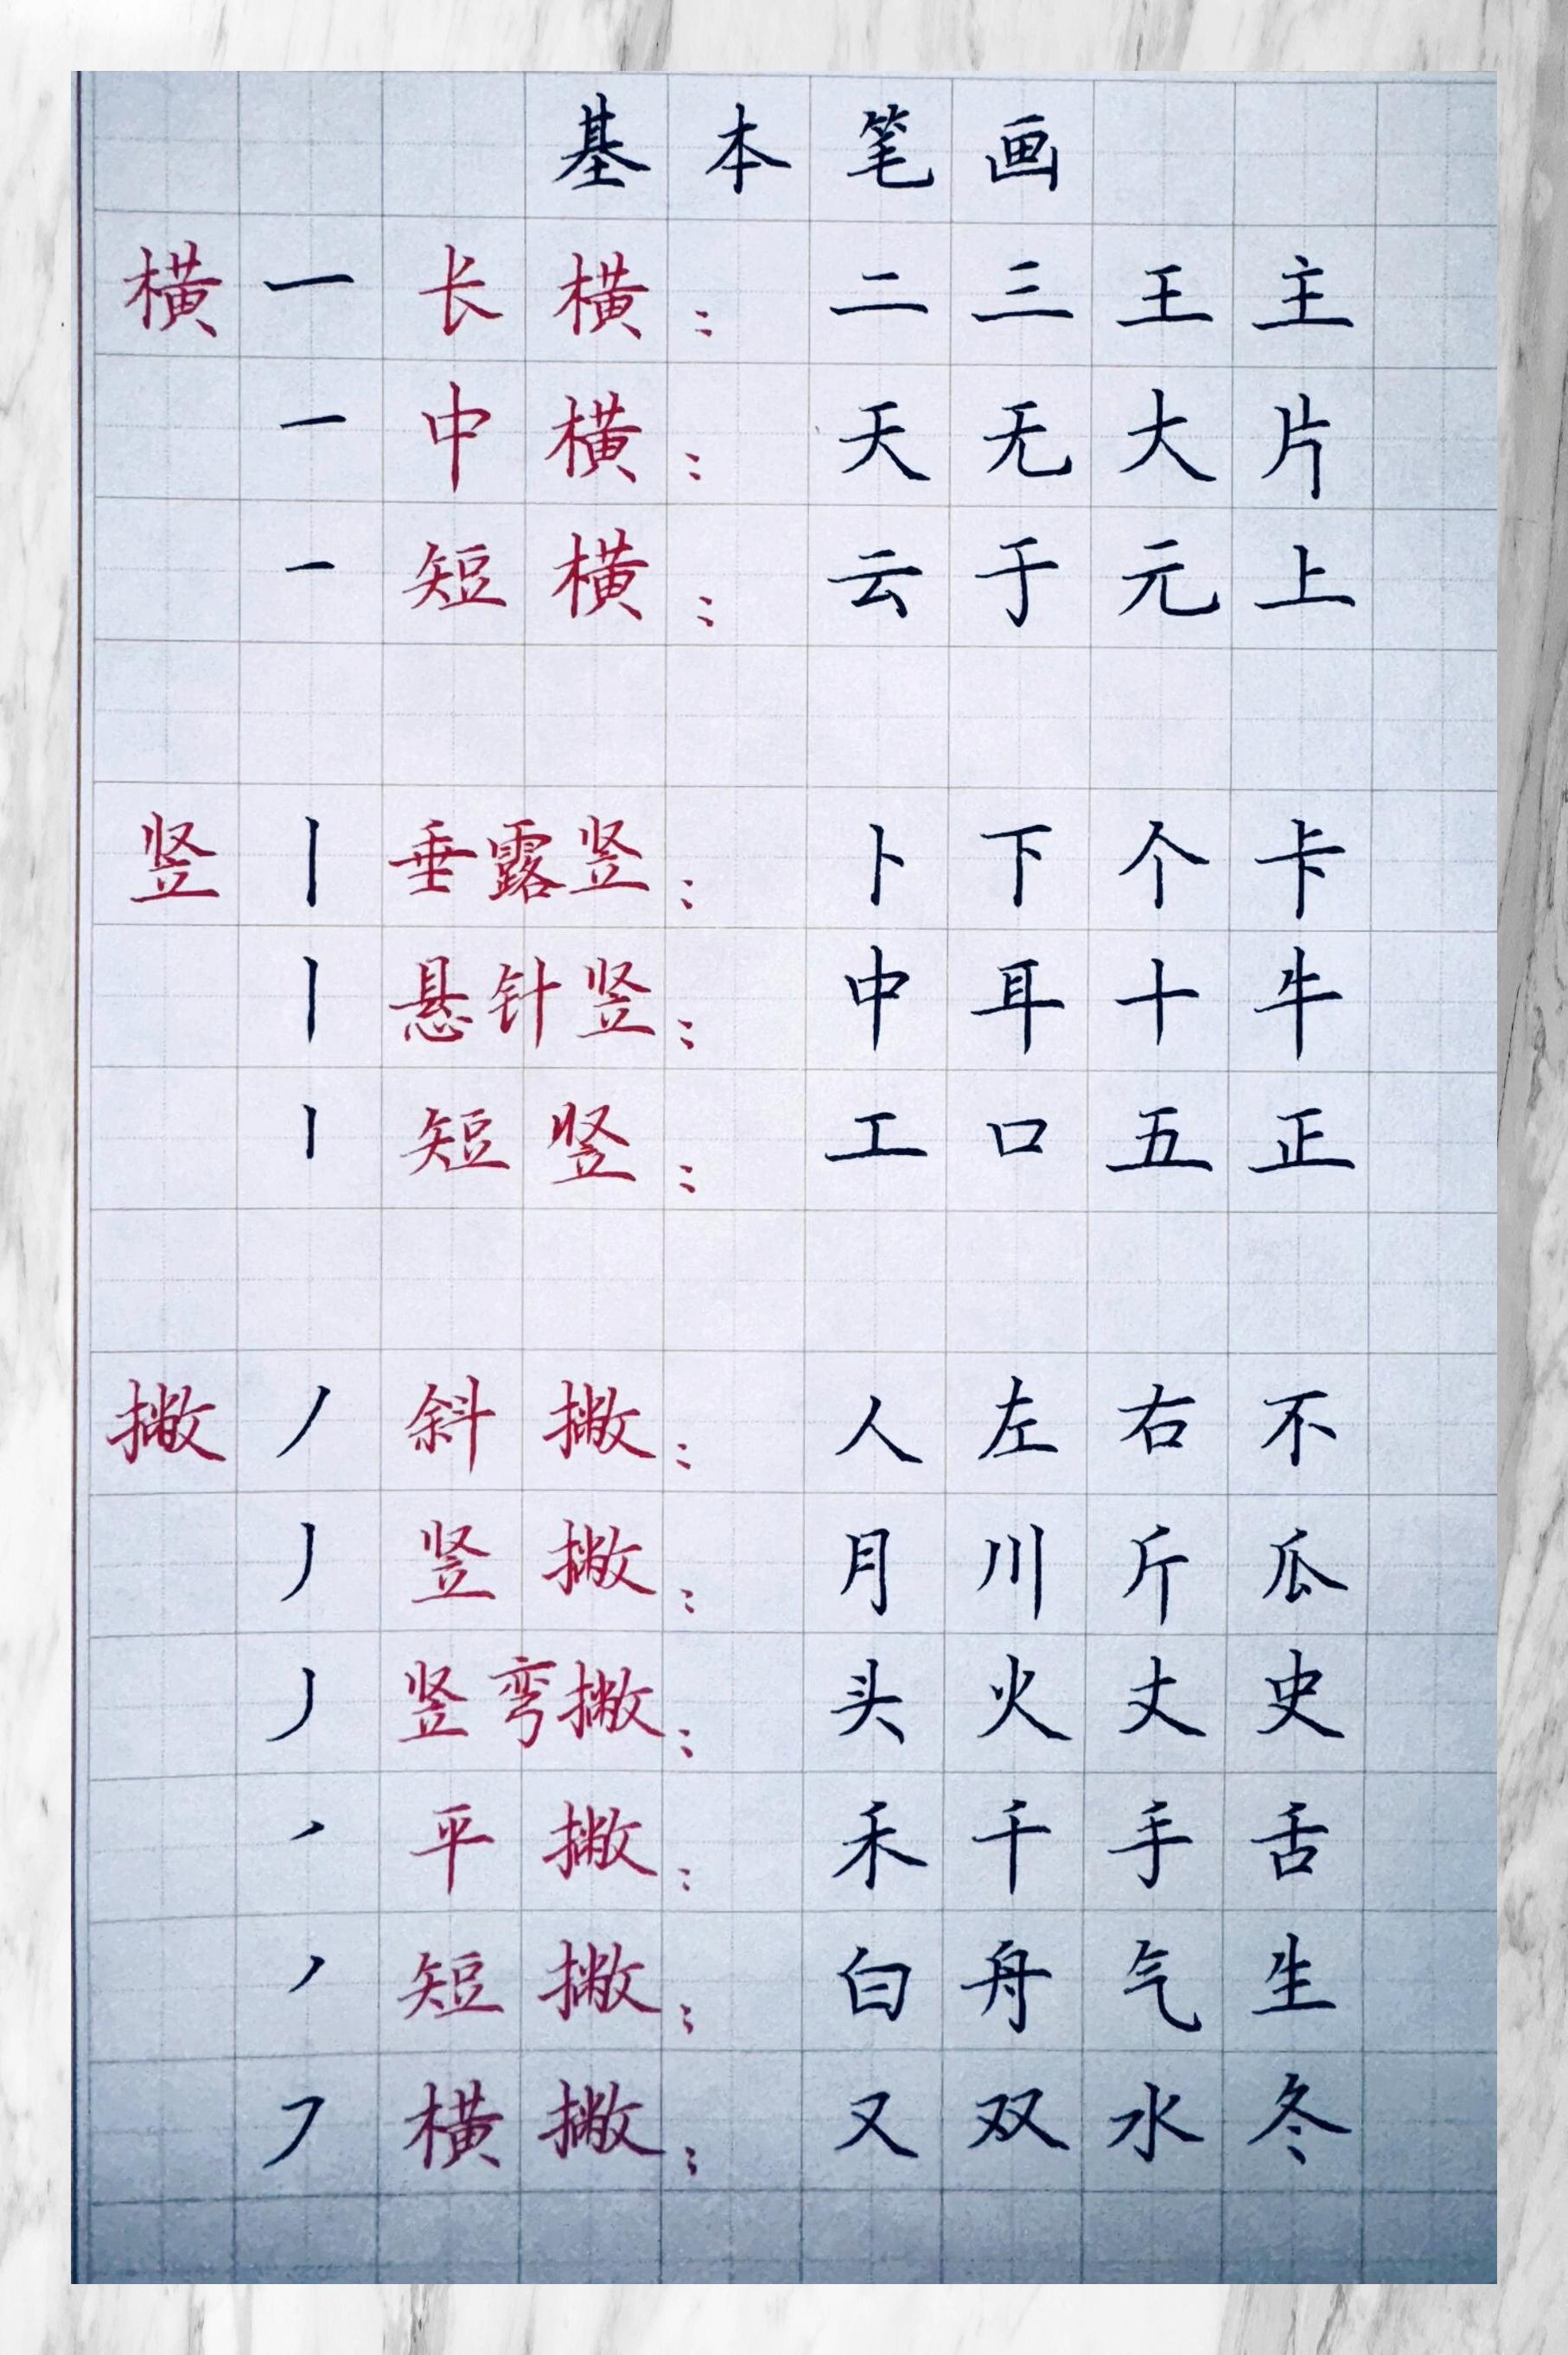 基本笔画
横 一 长横：二三王主
一 中横：天无大片
一 短横：云于元上
竖 丨 垂露竖：卜下个卡
丨 悬针竖：中耳十牛
丨 短竖：工口五正
撇 丿 斜撇：人左右不
丿 竖撇：月川斤瓜
丿 竖弯撇：头火丈史
㇒ 平撇：禾千手舌
㇒ 短撇：白舟气生
㇇ 横撇：又双水冬